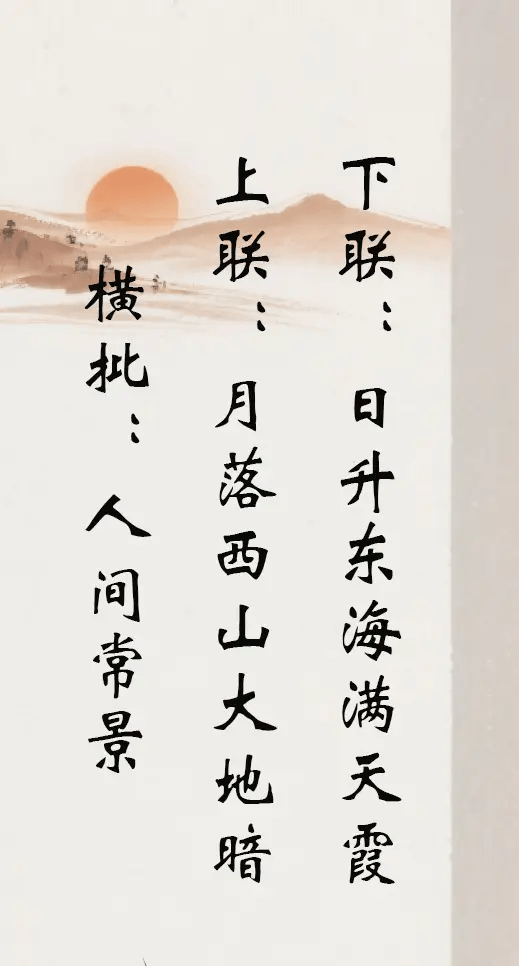 下联：日升东海满天霞
上联：月落西山大地暗
横批：人间常景